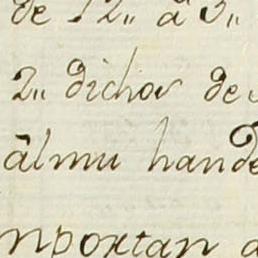 de 12„ â 3„
2„ dichos de
âlmu hande
mportan a